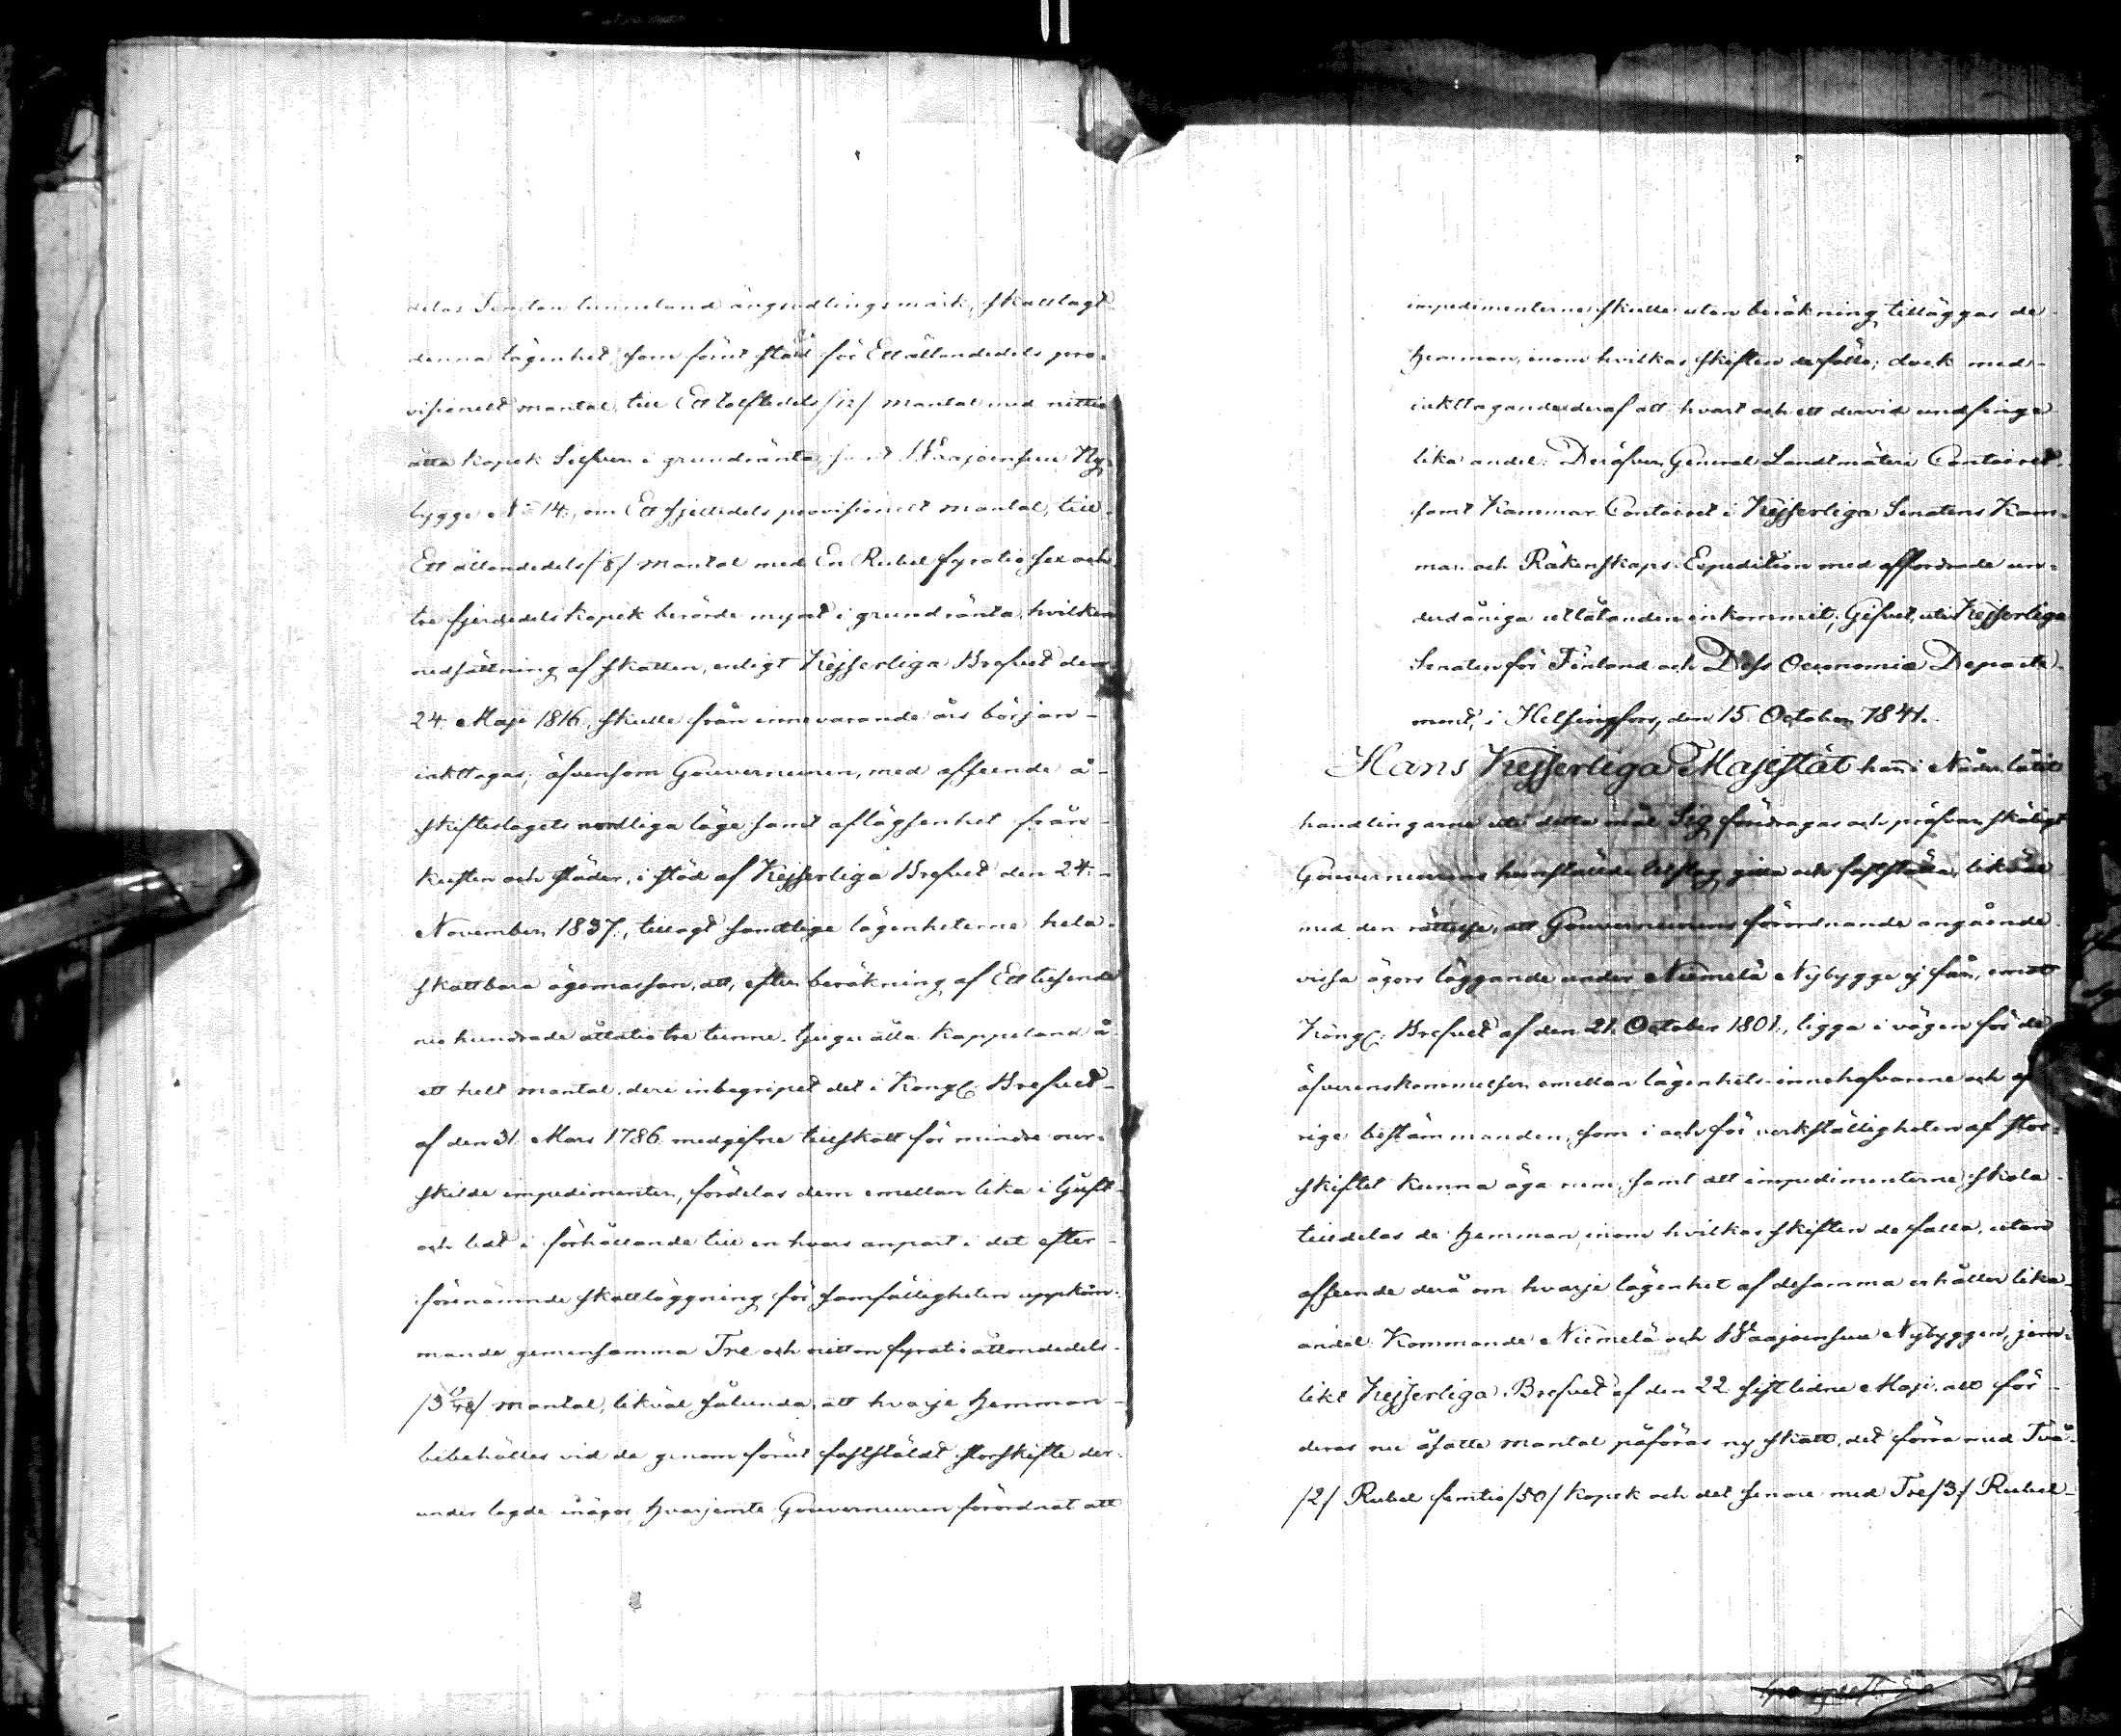 delas Semton tunneland ängsodlingsmark, skattlagt
denna lägenhet, som förut stått för Ett åttondedels pro-
visionelt mantal, till Ett tolftedels /12/ mantal med nittio
åtta kopek Silfver i grundränta, samt Waajoensuu Ny-
bygge N:o 14, om Ett fjerdedels provisionelt mantal, till
Ett åttondedels /8/ mantal med En Rubel fyratio sex och
tre fjerdedels kopek berörde mynt i grundränta, hvilken
nedsättning af skatten, enligt Kejserliga Brefvet den
24 Maji 1816, skulle från innevarande års början
iakttagas; äfvensom Gouverneuren, med afseende å
skifteslagets nordliga läge samt aflägsenhet från
kusten och städer, i stöd af Kejserliga Brefvet den 24
November 1837, tillagt samtlige lägenheterne hela
skattbara ägomassan, att, efter beräkning af Ett tusende
nio hundrade åttatio tre tunne. tjugu åtta kappeland å
ett helt mantal, deri inbegripet det i Kongl. Brefvet
af den 31 Mars 1786 medgifne tillskott för mindre our-
skilde impedimenter, fördelas dem emellan lika i ljuft
och ledt i förhållande till en hvars anpart i det efter
förenämnde skattläggning för samfälligheten uppkom-
mande gemensamma Tre och nitton fyratioåttondedels
/3 19/48/ mantal, likväl sålunda, att hvarje Hemman
bibehålles vid de genom förut fastställdt storskifte der-
under lagde inägor, hvarjemte Gouverneuren förordnat att
impedimenterne skulle utan beräkning tilläggas de
Hemman, inom hvilkas skiften de fölle; dock med
iakttagande deraf att hvart och ett dervid undfinge
lika andel. Deröfver General Landtmäteri Contoiret
samt Kammar Contoiret i Kejserliga Senatens Kam-
mar och Räkenskaps Expedition med affordrade un-
derdåniga utlåtanden inkommit; Gifvet, uti Kejserliga
Senaten för Finland och Dess Oeconomie Departe-
ment, i Helsingfors, den 15 October 1841.
Hans Kejserliga Majestät har i Nåder låtit
handlingarne uti detta mål Sig föredragas och pröfvar skäligt
Gouverneurens hemställde utslag gilla och fastställa, likväl
med den rättelse, att Gouverneurens förordnande angående
vissa ägors läggande under Niemelä Nybygge ej får, emot
Kongl. Brefvet af den 21 October 1801, ligga i vägen för de
öfverenskommelser emellan lägenhets-innehafvarene och
rige bestämmanden, som i och för verkställigheten af stor-
skiftet kunna äga rum, samt att impedimenterne skola
tilldelas de Hemman, inom hvilkas skiften de falla, utan
afseende derå om hvarje lägenhet af desamma erhåller lika
andel. Kommande Niemelä och Waajoensuu Nybyggen, jem-
likt Kejserliga Brefvet af den 22 sistlidne Maji, att för
deras nu åsatte mantal påföras ny skatt, det förra med Två
/2/ Rubel femtio /50/ kopek och det senare med Tre /3/ Rubel